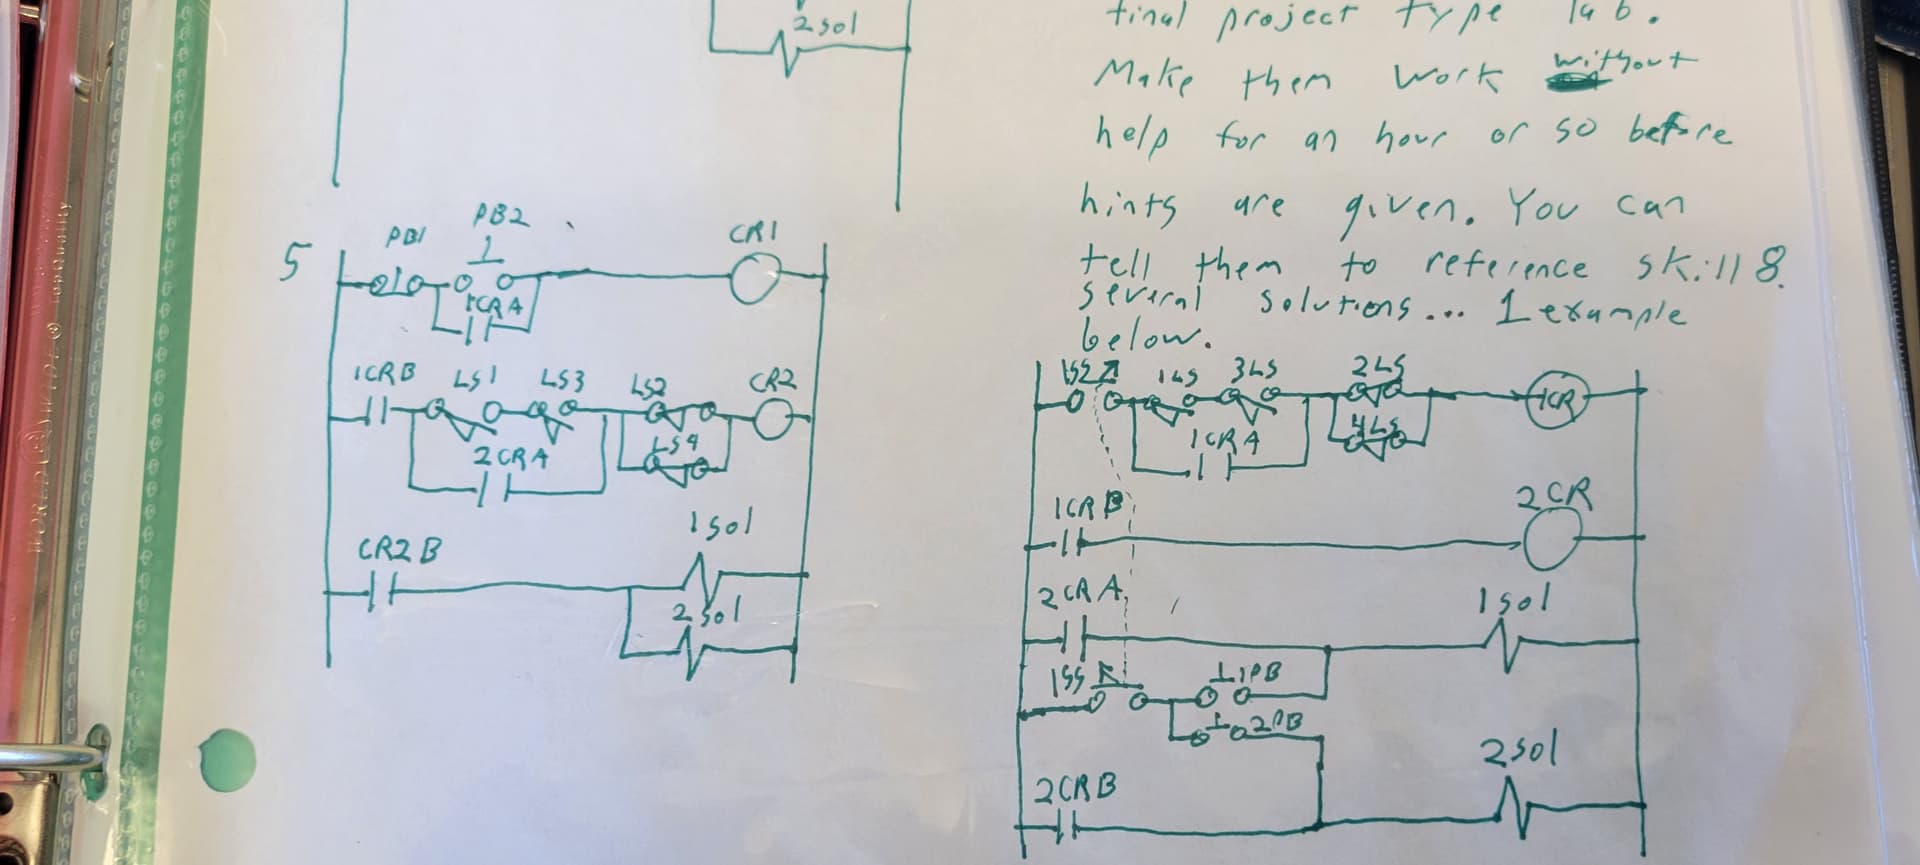 2 sol
final project type lab.
Make them work without
help for an hour or so before
hints are given. You can
tell them to reference skill 8.
several solutions... 1 example
below.
5
PB1 PB2 CR1
1CRA
1CRB LS1 LS3 LS2 CR2
LS4
2CRA
CR2B 1sol
2sol
1SS 1LS 3LS 2LS 1CR
4LS
1CRA
1CRB 2CR
2CRA 1sol
1SS 1PB
2PB
2sol
2CRB